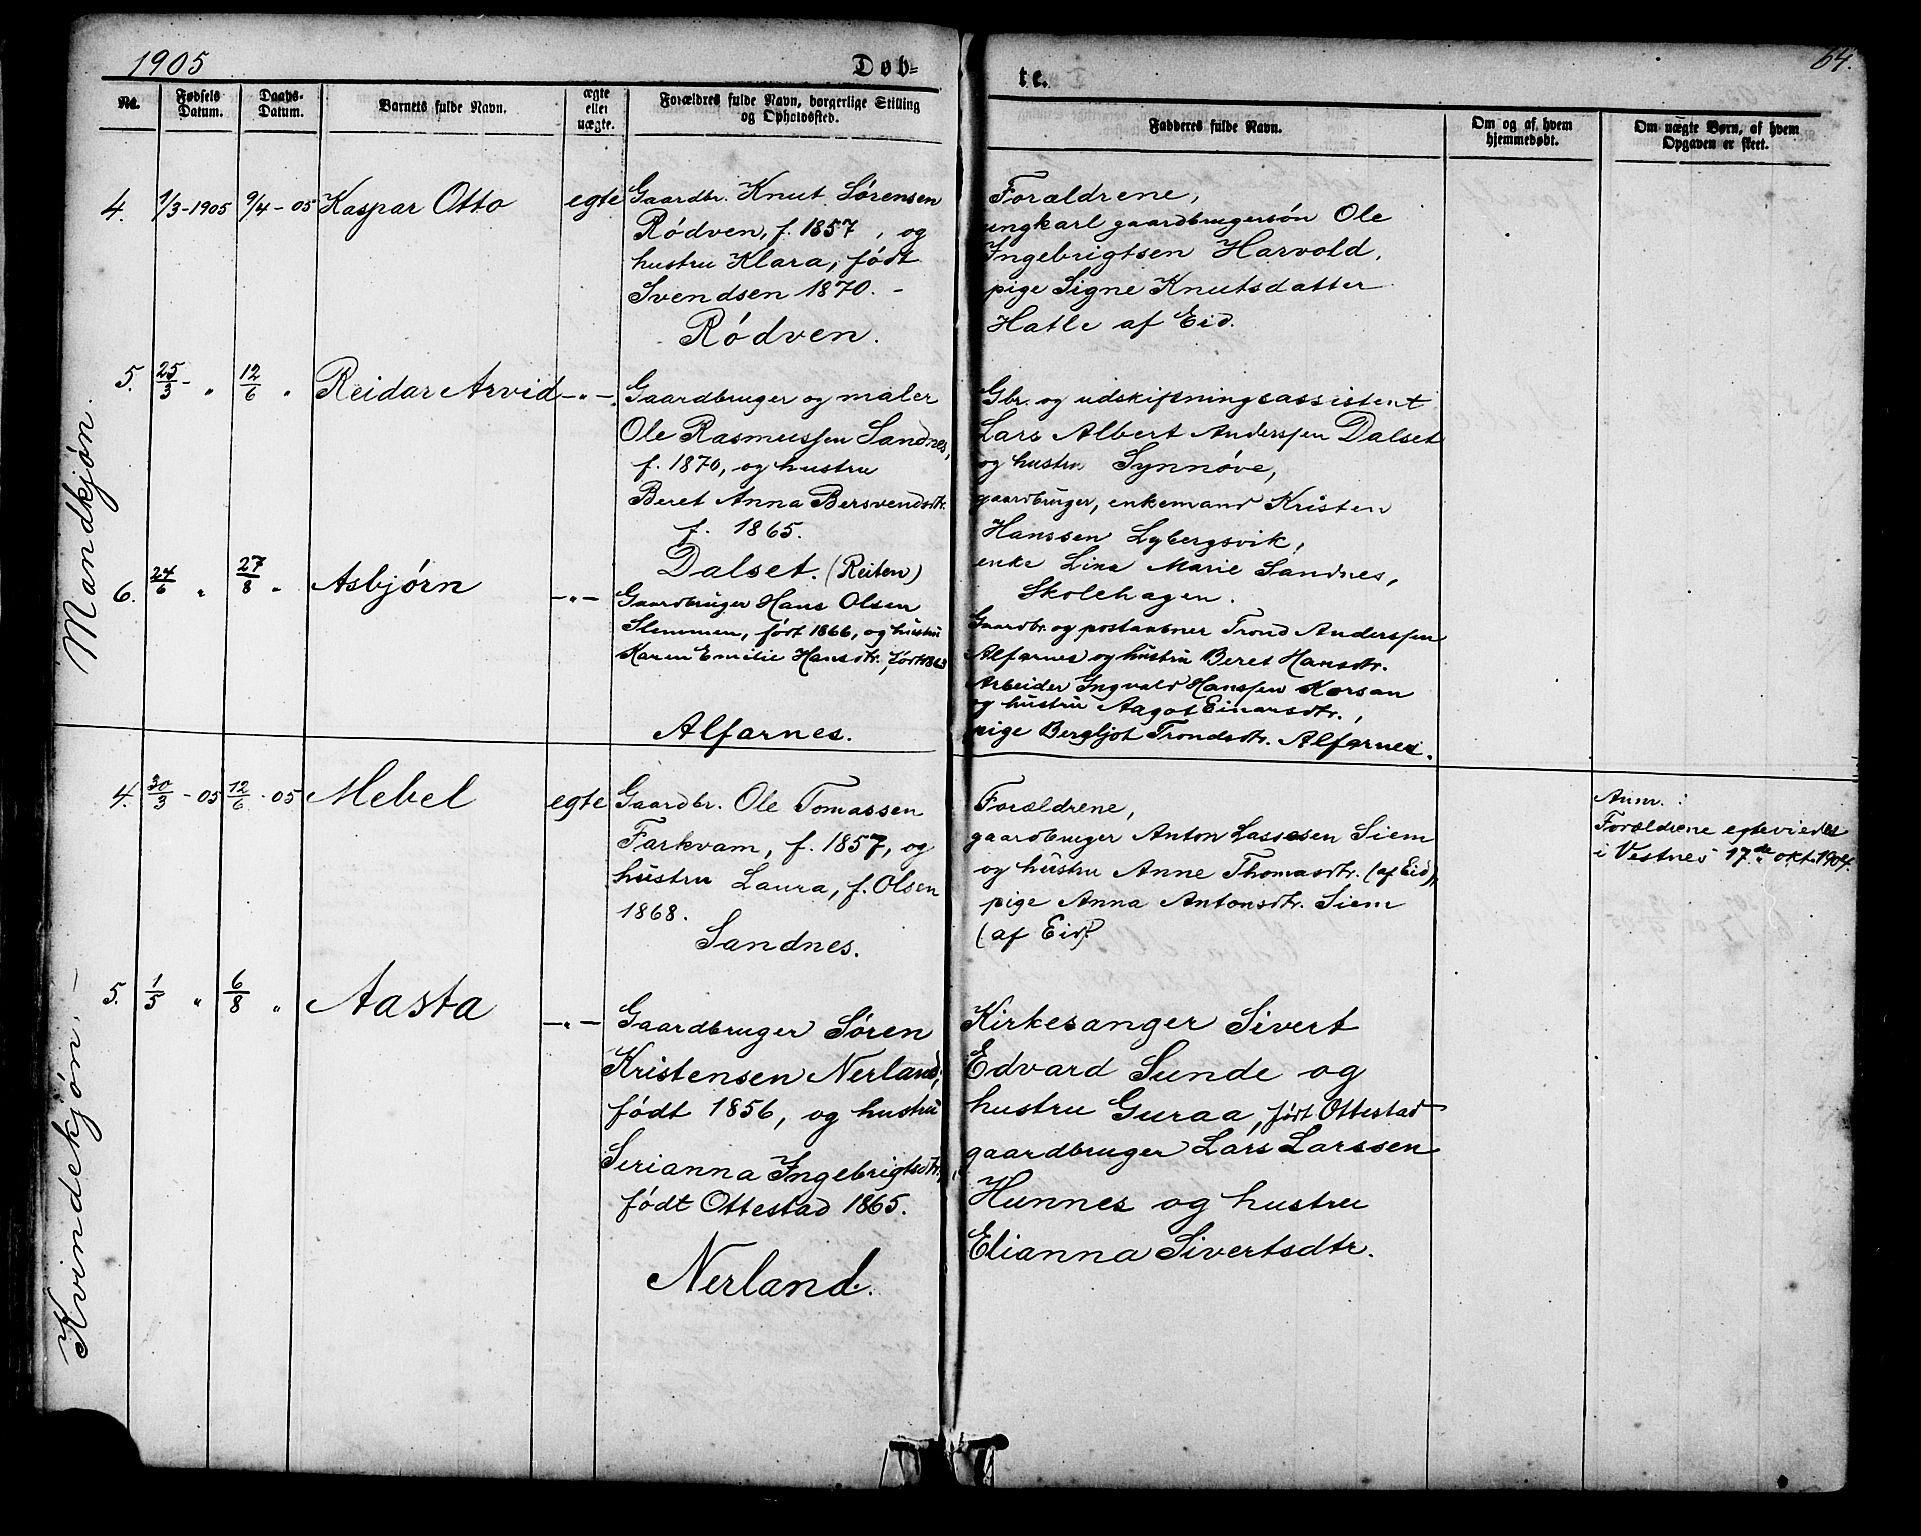 1905
Døb-
te.
64.
No.
Fødsels Datum.
Daabs-Datum.
Barnets fulde Navn.
ægte eller uægte.
Forældres fulde Navn, borgerlige Stilling og Opholdssted.
Fadderes fulde Navn.
Om og af hvem hjemmedøbt.
Om uægte Børn, af hvem Opgaven er skeet.
Mandkjøn.
4. 1/3-1905 9/4-05 Kaspar Otto egte
Gaardbr. Knut Sørensen
Rødven, f. 1857, og
hustru Klara, født
Svendsen 1870. -
Rødven.
Forældrene,
ungkarl gaardbrugersøn Ole
Ingebrigtsen Harvold,
pige Signe Knutsdatter
Hatle af Eid.
5. 25/3 - „ 12/6 „ Reidar Arvid -„-
Gaardbruger og maler
Ole Rasmussen Sandnes,
f. 1870, og hustru
Beret Anna Bersvendsdtr.
f. 1865.
Dalset. (Reiten)
Gbr. og udskiftningsassistent
Lars Albert Anderssen Dalset
og hustru Synnøve,
gaardbruger, enkemand Kristen
Hanssen Lybergsvik,
enke Lina Marie Sandnes,
Skolehagen.
6. 24/6 „ 27/8 „ Asbjørn -„-
Gaardbruger Hans Olsen
Slemmen, født 1866, og hustru
Karen Emilie Hansdtr., født 1863
Alfarnes.
Gaardbr. og postaabner Trond Anderssen
Alfarnes og hustru Beret Hansdtr.
Arbeider Ingvald Hanssen Korsan
og hustru Aagot Einarsdtr.,
pige Bergljot Trondsdtr. Alfarnes.
Kvindekjøn. -
4. 30/3 - 05 12/6 - 05 Mebel egte
Gaardbr. Ole Tomassen
Farkvam, f. 1857, og
hustru Laura, f. Olsen
1868.
Sandnes.
Forældrene,
gaardbruger Anton Lassesen Siem
og hustru Anne Thomasdtr. (af Eid),
pige Anna Antonsdtr. Siem
(af Eid).
Anm.:
Forældrene egteviedes
i Vestnes 17de okt. 1904.
5. 1/5 „ 6/8 „ Aasta -„-
Gaardbruger Søren
Kristensen Nerland,
født 1856, og hustru
Serianna Ingebrigtsdtr.,
født Ottestad 1865.
Nerland.
Kirkesanger Sivert
Edvard Sunde og
hustru Guraa, født Ottestad
gaardbruger Lars Larssen
Hunnes og hustru
Elianna Sivertsdtr.